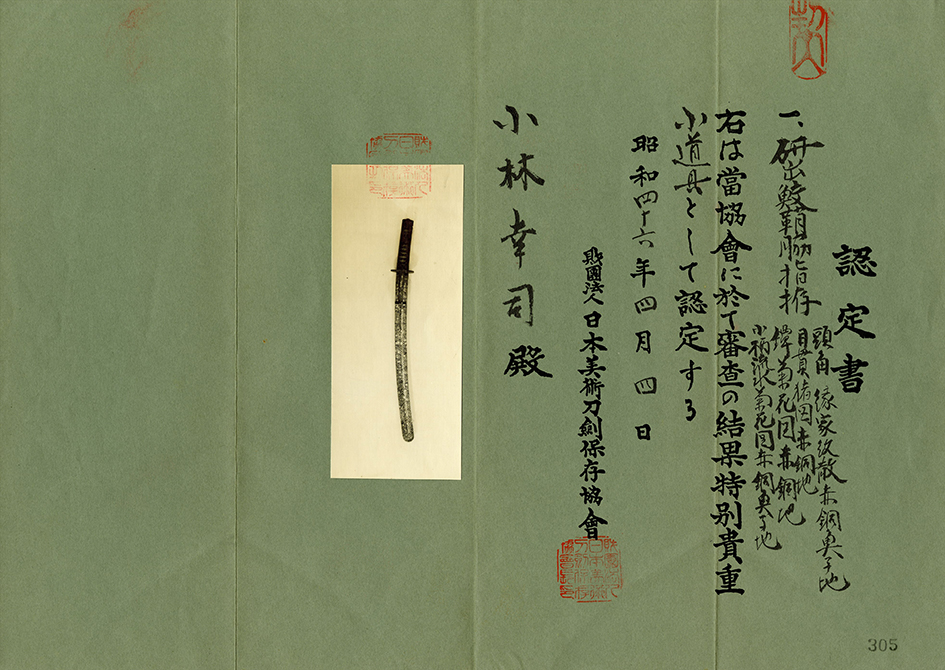 認定書
一、研出鮫鞘脇指拵
頭角 縁家紋散赤銅魚子地
目貫猪図赤銅地
鐔菊花図赤銅地
小柄流水菊花図赤銅魚子地
右は當協會に於て審査の結果特別貴重
小道具として認定する
昭和四十六年四月四日
財團法人 日本美術刀劍保存協會
小林幸司殿
305